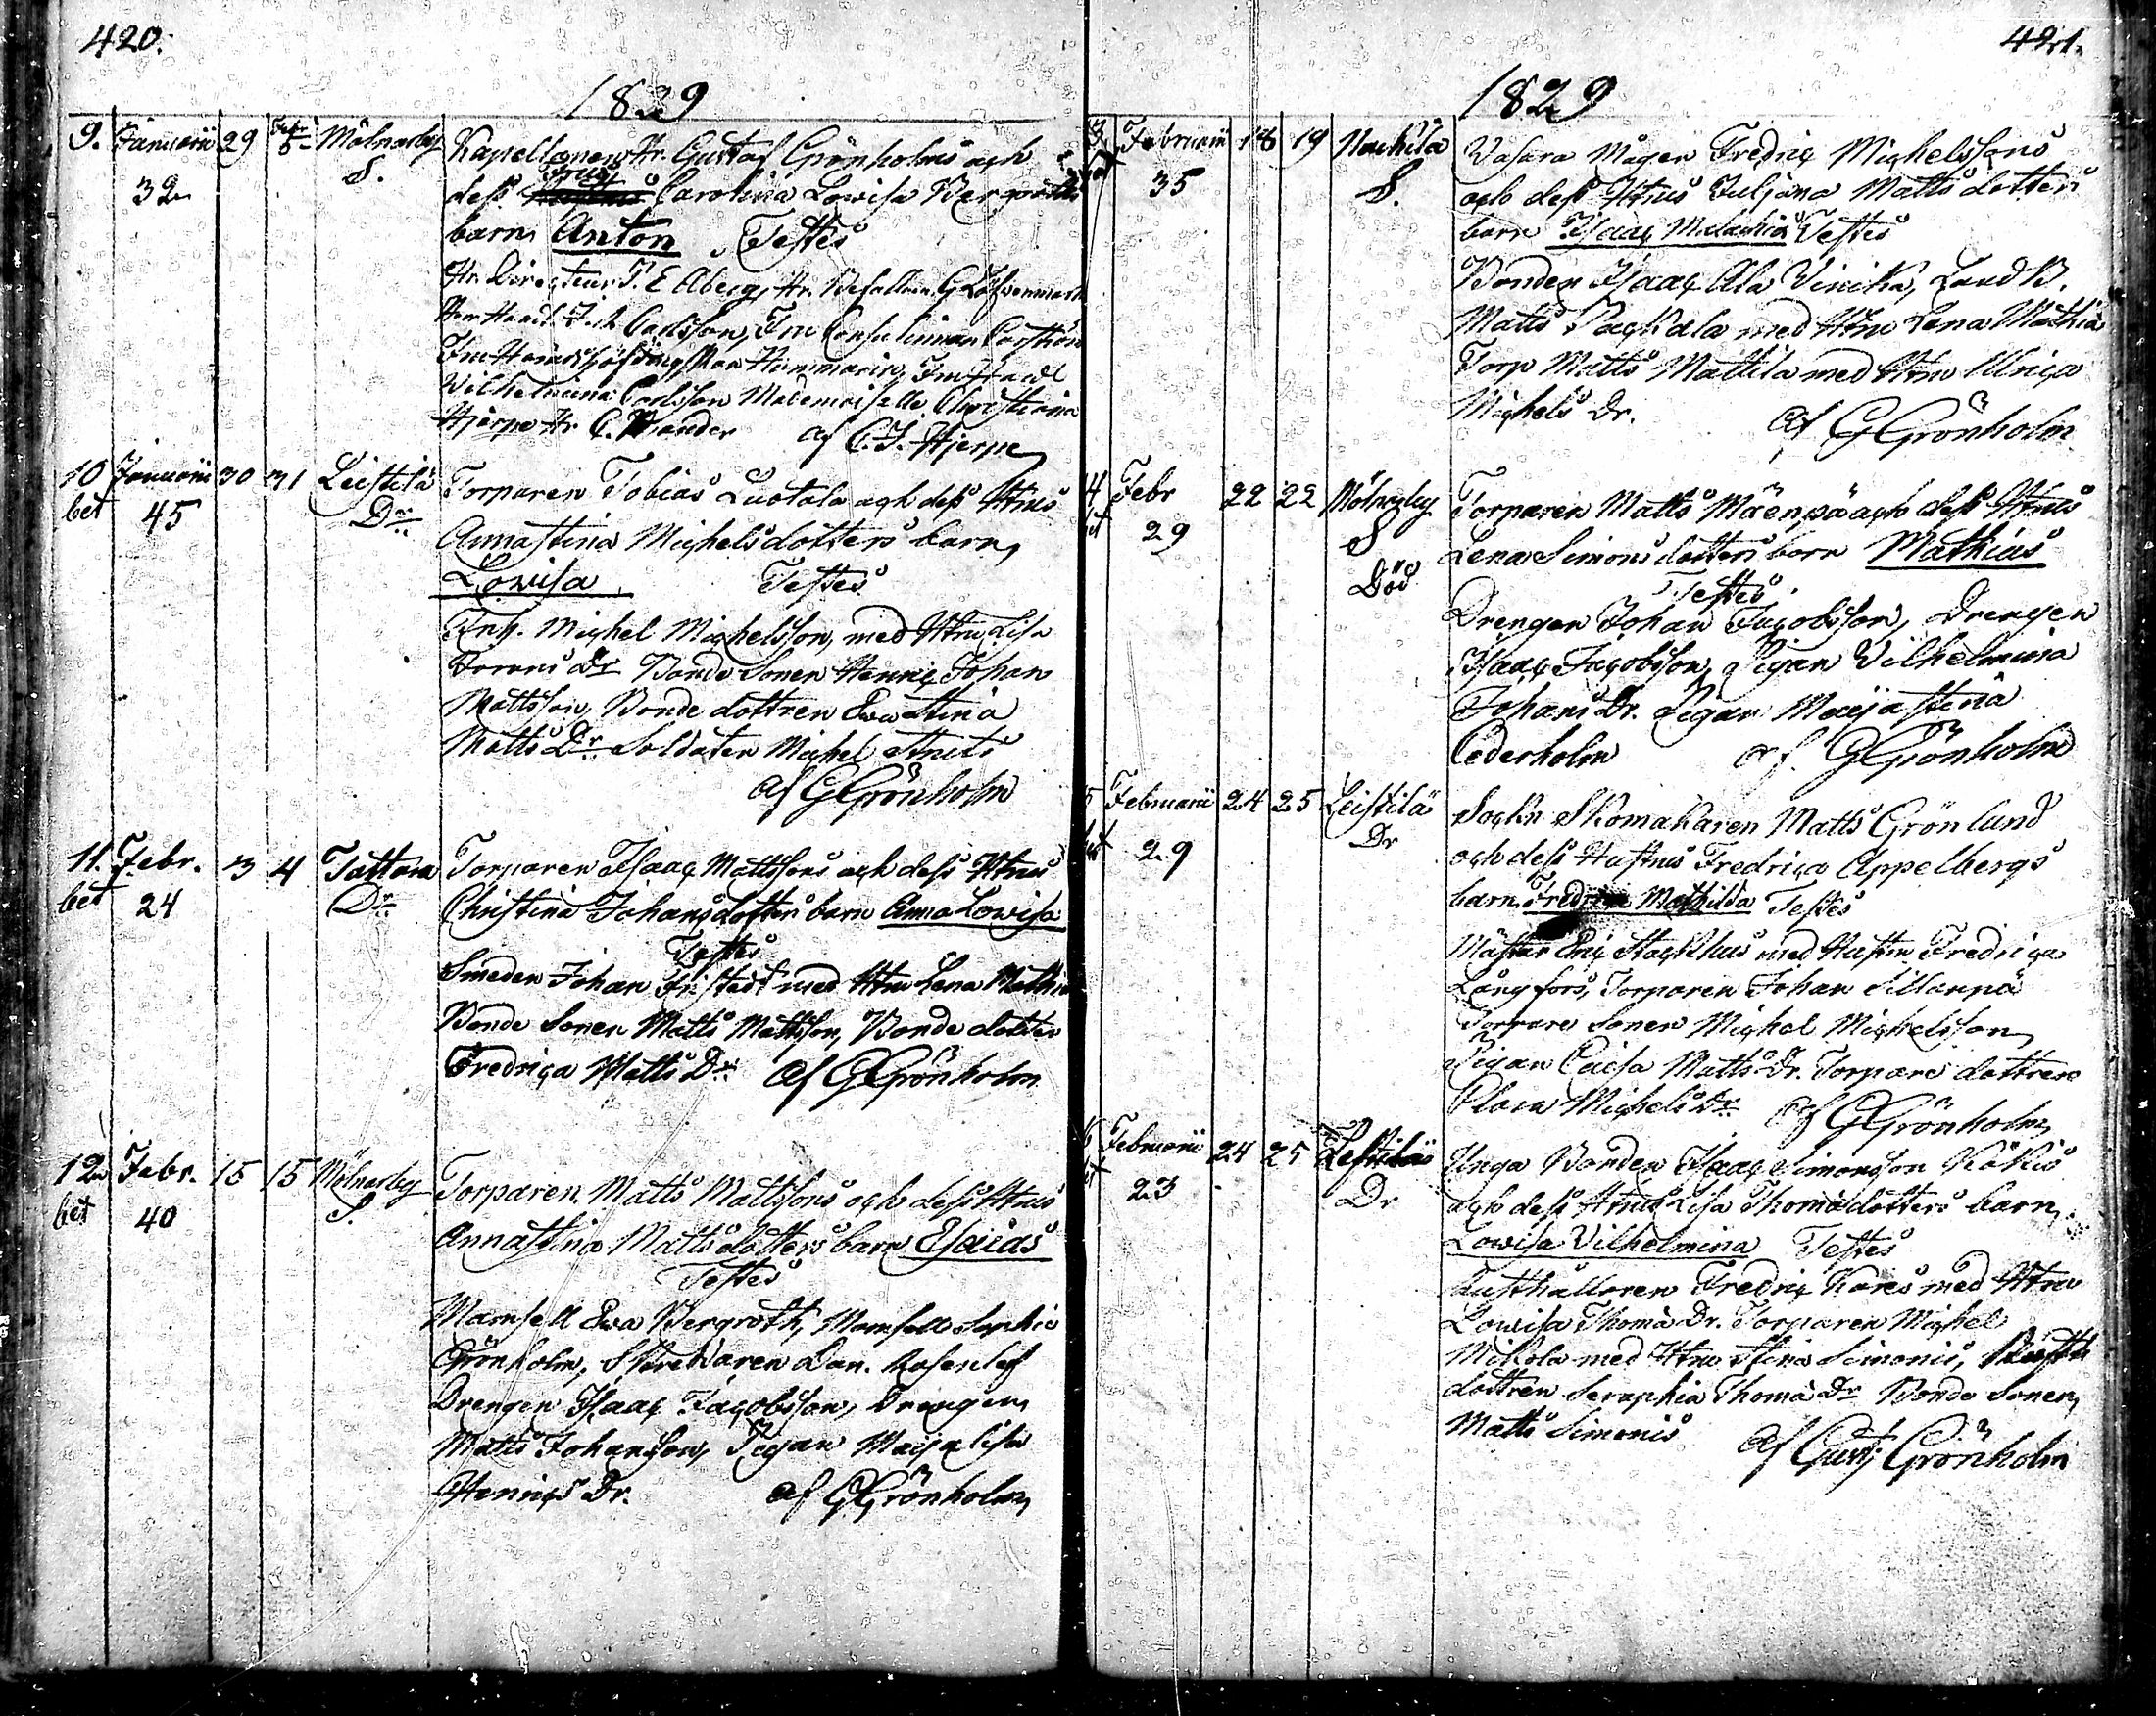 420.
1829
9. Januarii 29 Febr. 5 Mölnarby Kapellanen Hr. Gustaf Grönholms och
32 S. dess Frus Carolina Lovisa Bergroths
barn Anton Testes
Hr. Directeur P. E Åberg, Hr. Befallnm. G
Carlsson, Fru Consulinnan
Fru Häradshöfdingskan Hammarin, Fru
Wilhelmina Carlsson Mademoiselle Christina
Hjerpe Hr C. af C. J. Hjerpe
10 Januarii 30 31 Leistilä Torparen Tobias Luotola och dess Htrus
bet 45 Dr. Annastina Michelsdotters barn,
Lovisa Testes
Inh. Michel Michelsson, med Htru Lisa
Dr Bonde Sonen Henric Johan
Mattsson, Bonde dottren Eva Stina
Matts Dr Soldaten Michel
af GGrönholm
11. Febr. 3 4 Tattara Torparen Isaac Mattsons och dess Htrus
bet 24 Dr. Christina Johansdotters barn Anna Lovisa
Testes
Smeden Johan Fristedt med Htru Lena
Bonde Sonen Matts Mattsson, Bonde dotter
Fredrica Matts Dr. af GGrönholm
12 Febr. 15 15 Mölnarby Torparen Matts Mattsons och dess Htrus
bet 40 S. Annastina Matts dotters barn Esaias
Testes
Mamsell Eva Bergroth, Mamsell Sophie
Grönholm, Skräddaren Dan. Rosenlöf
Drengen Isaac Jacobsson, Drengen
Matts Johansson, Pigan Maija Lisa
Henrics Dr. af GGrönholm
421.
1829
Februarii 18 19 Nackila Vasara Mågen Fredric Michelssons
35 S. och dess Htrus Juljana Matts dotters
barn Isaac Malachias Testes
Bonden Isaac Ala Vinika, Land B.
Matts Packala med Htru Lena Mathiæ
Torp Matts Mattila med Htru Ulrica
Michels Dr. af GGrönholm
Febr 22 22 Mölnarby Torparen Matts Mäenpä och dess Htrus
29 S Lena Simons dotters barn Mathias
Död Testes
Drengen Johan Jacobsson, Drengen
Isaac Jacobsson, Pigan Vilhelmina
Johans Dr. Pigan Maija Stina
Cederholm af. GGrönholm
Februarii 24 25 Leistilä Sockn Skomakaren Matts Grönlund
29 Dr och dess Hustrus Fredrica Appelbergs
barn Fredrica Mathilda Testes
Mäster Eric Stackhus med Hustru Fredrica
Långfors, Torparen Johan Sillanpä
Torpare Sonen Michel Michelsson
Pigan Caisa Matts Dr. Torpare dottren
Clara Michels Dr. af GGrönholm
Februarii 24 25 Leistilä Unga Bonden Isaac Simonsson Kökis
23 Dr och dess Htrus Lisa Thomædotters barn,
Lovisa Vilhelmina Testes
Rusthållaren Fredric Kares med Htru
Lovisa Thomæ Dr. Torparen Michel
Mikola med Htru Stina Simonis,
dottren Seraphia Thomæ Dr Bonde Sonen
Matts Simonis af Gust: Grönholm